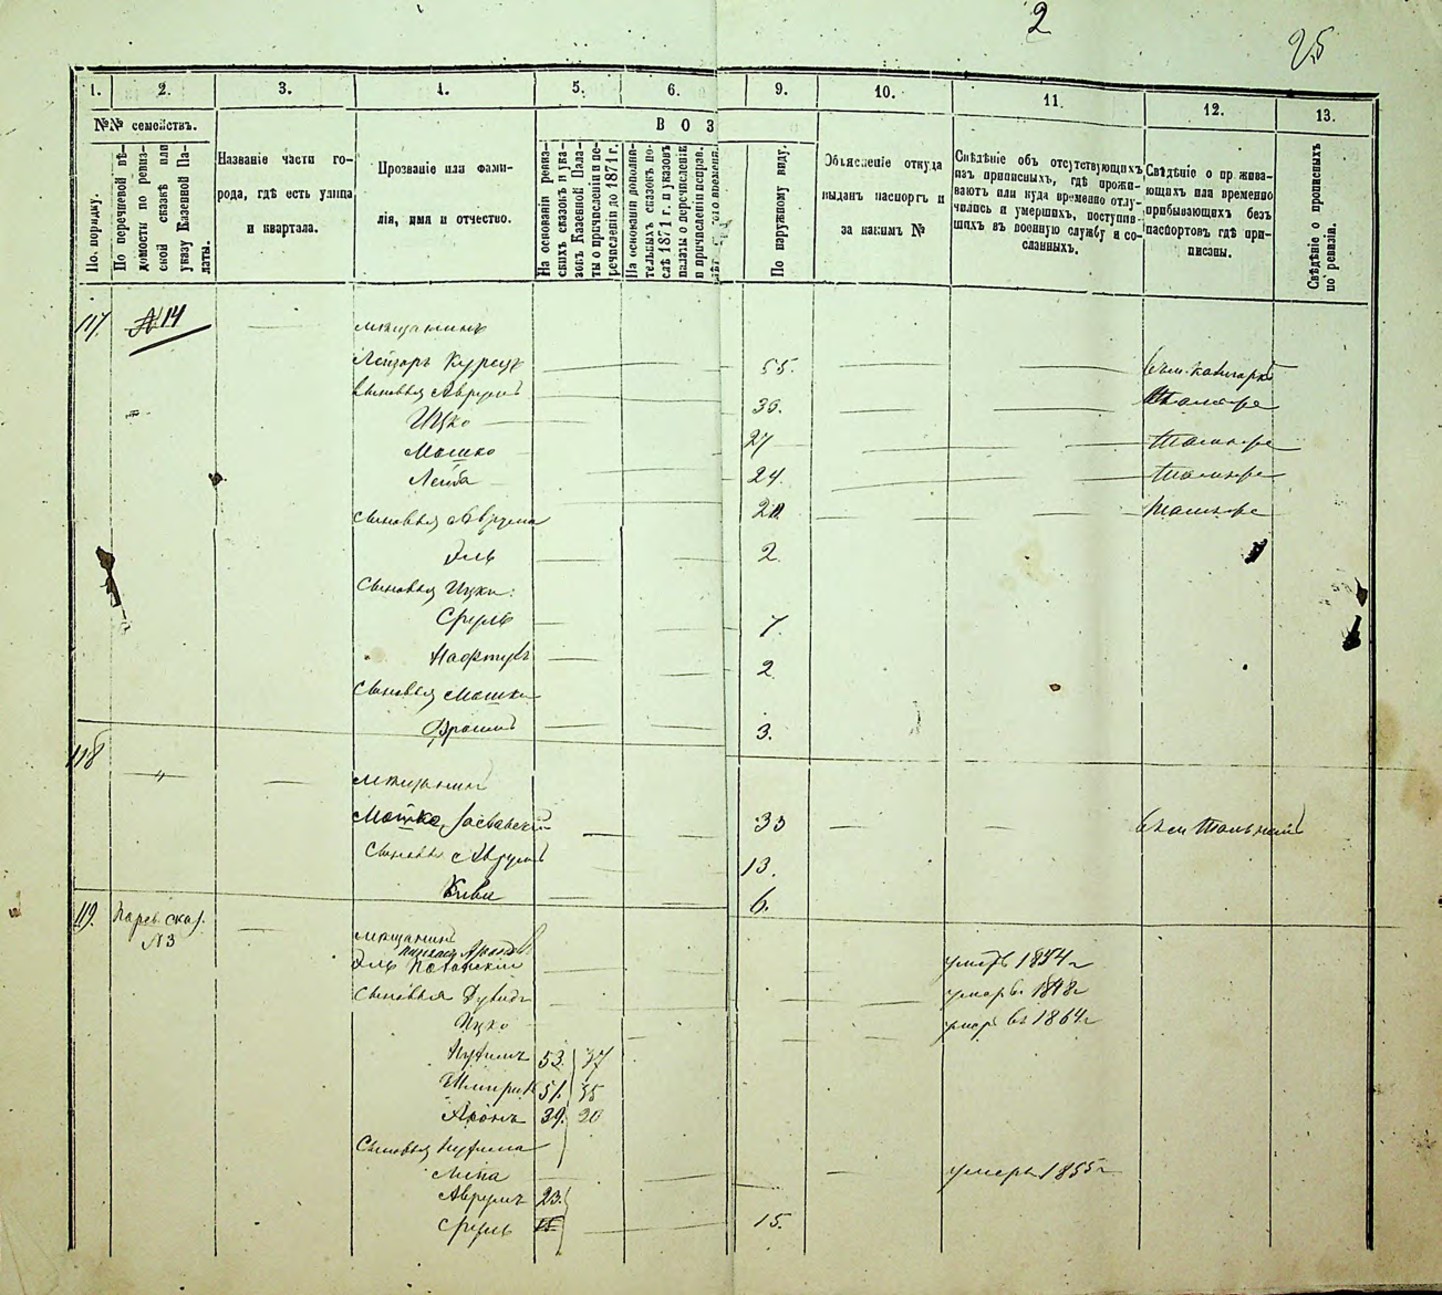 2
25
1. 2. 3. 4. 5. 6. 9. 10. 11. 12. 13.
№№ семействъ.
В О З
По. порядку.
По перечневой вѣ-
домости по ревиз-
ской сказкѣ или
указу Казенной Па-
латы.
Названіе части го-
рода, гдѣ есть улица
и квартала.
Прозваніе или фами-
лія, имя и отчество.
На основаніи ревиз-
скихъ сказокъ и ука-
зовъ Казенной Пала-
ты о причисленіи и пе-
речисленіи до 1871 г.
На основаніи дополни-
тельныхъ сказокъ по-
слѣ 1871 г. и указовъ
палаты о перечисленіи
и причисленіи исправ.
По наружному виду.
Объясненіе откуда
выданъ паспортъ и
за какимъ №
Свѣдѣніе объ отсутствующихъ
изъ приписныхъ, гдѣ прожи-
ваютъ или куда временно отлу-
чились и умершихъ, поступив-
шихъ въ военную службу и со-
сланныхъ.
Свѣдѣніе о прожива-
ющихъ или временно
прибывающихъ безъ
паспортовъ гдѣ при-
писаны.
Свѣдѣніе о прописныхъ
по ревизіи.
117. №14 мѣщанинъ
Лейзоръ 55.
сыновья Аврумъ 36.
Ицко 27
Мошко 24.
Лейба 20.
сыновья Аврума
Эль 2.
Сыновья Ицки:
Сруль 7.
Нафтулъ 2
сыновья Мошки
Фроимъ 3.
118 " мѣщанинъ
Мошко 33
Сыновья Аврумъ 13.
Кива 6.
119. Парев. сказ.
№3
мѣщанинъ
Эль умеръ 1854 г
Сыновья Дувидъ умеръ 1848 г
Ицко умеръ въ 1864 г
Нухимъ 53. 37
51. 35
Аронъ 39. 20
Сыновья Нухима
Липа умеръ 1855 г
Аврумъ 23.
Сруль 15.